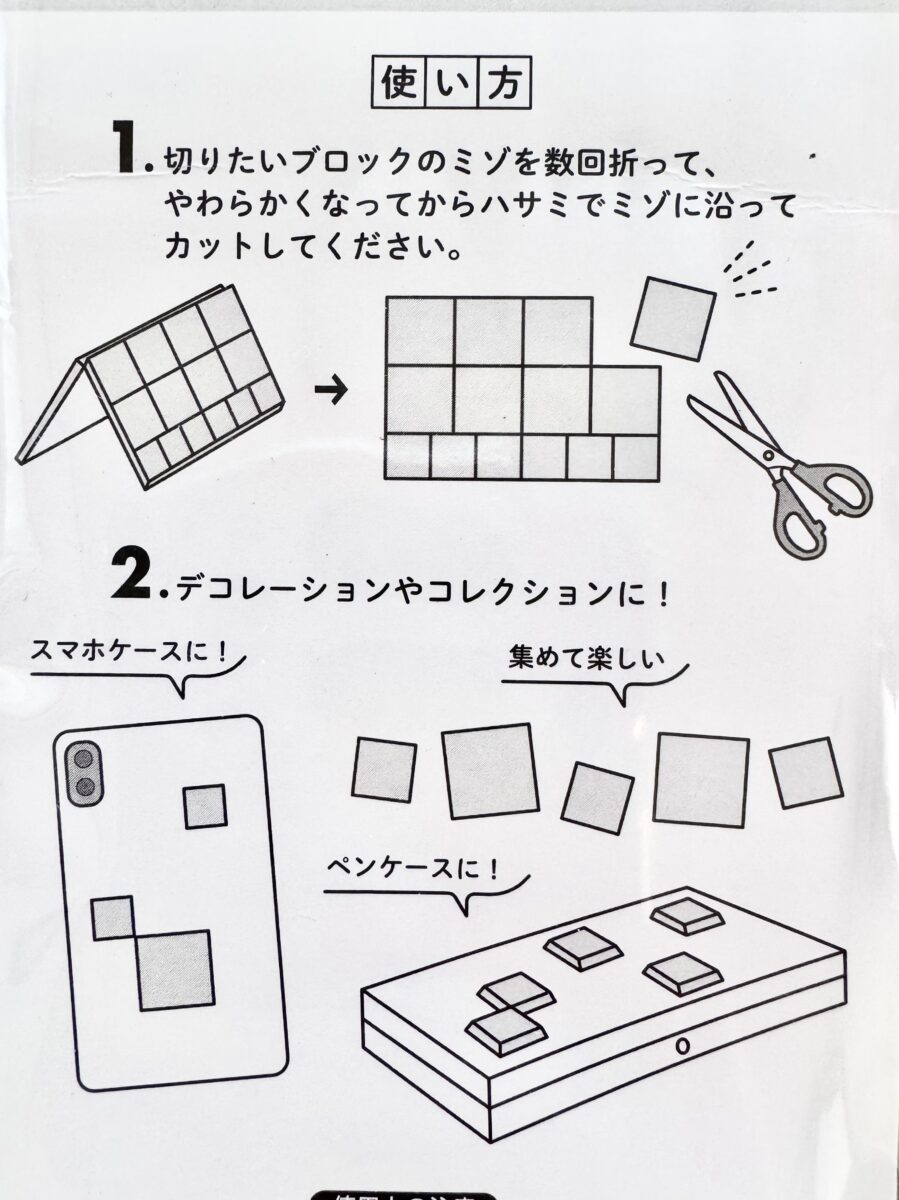 使い方
1. 切りたいブロックのミゾを数回折って、
やわらかくなってからハサミでミゾに沿って
カットしてください。
2. デコレーションやコレクションに！
スマホケースに！
集めて楽しい
ペンケースに！